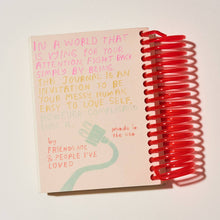 IN A WORLD THAT
IS VYING FOR YOUR
ATTENTION, FIGHT BACK
SIMPLY BY BEING.
THE JOURNAL IS AN
INVITATION TO BE
YOUR MESSY, HUMAN,
EASY TO LOVE SELF.
HOWEVER COMPLICATED
by
FRIENDS, ME
& PEOPLE I'VE
LOVED
made in the usa